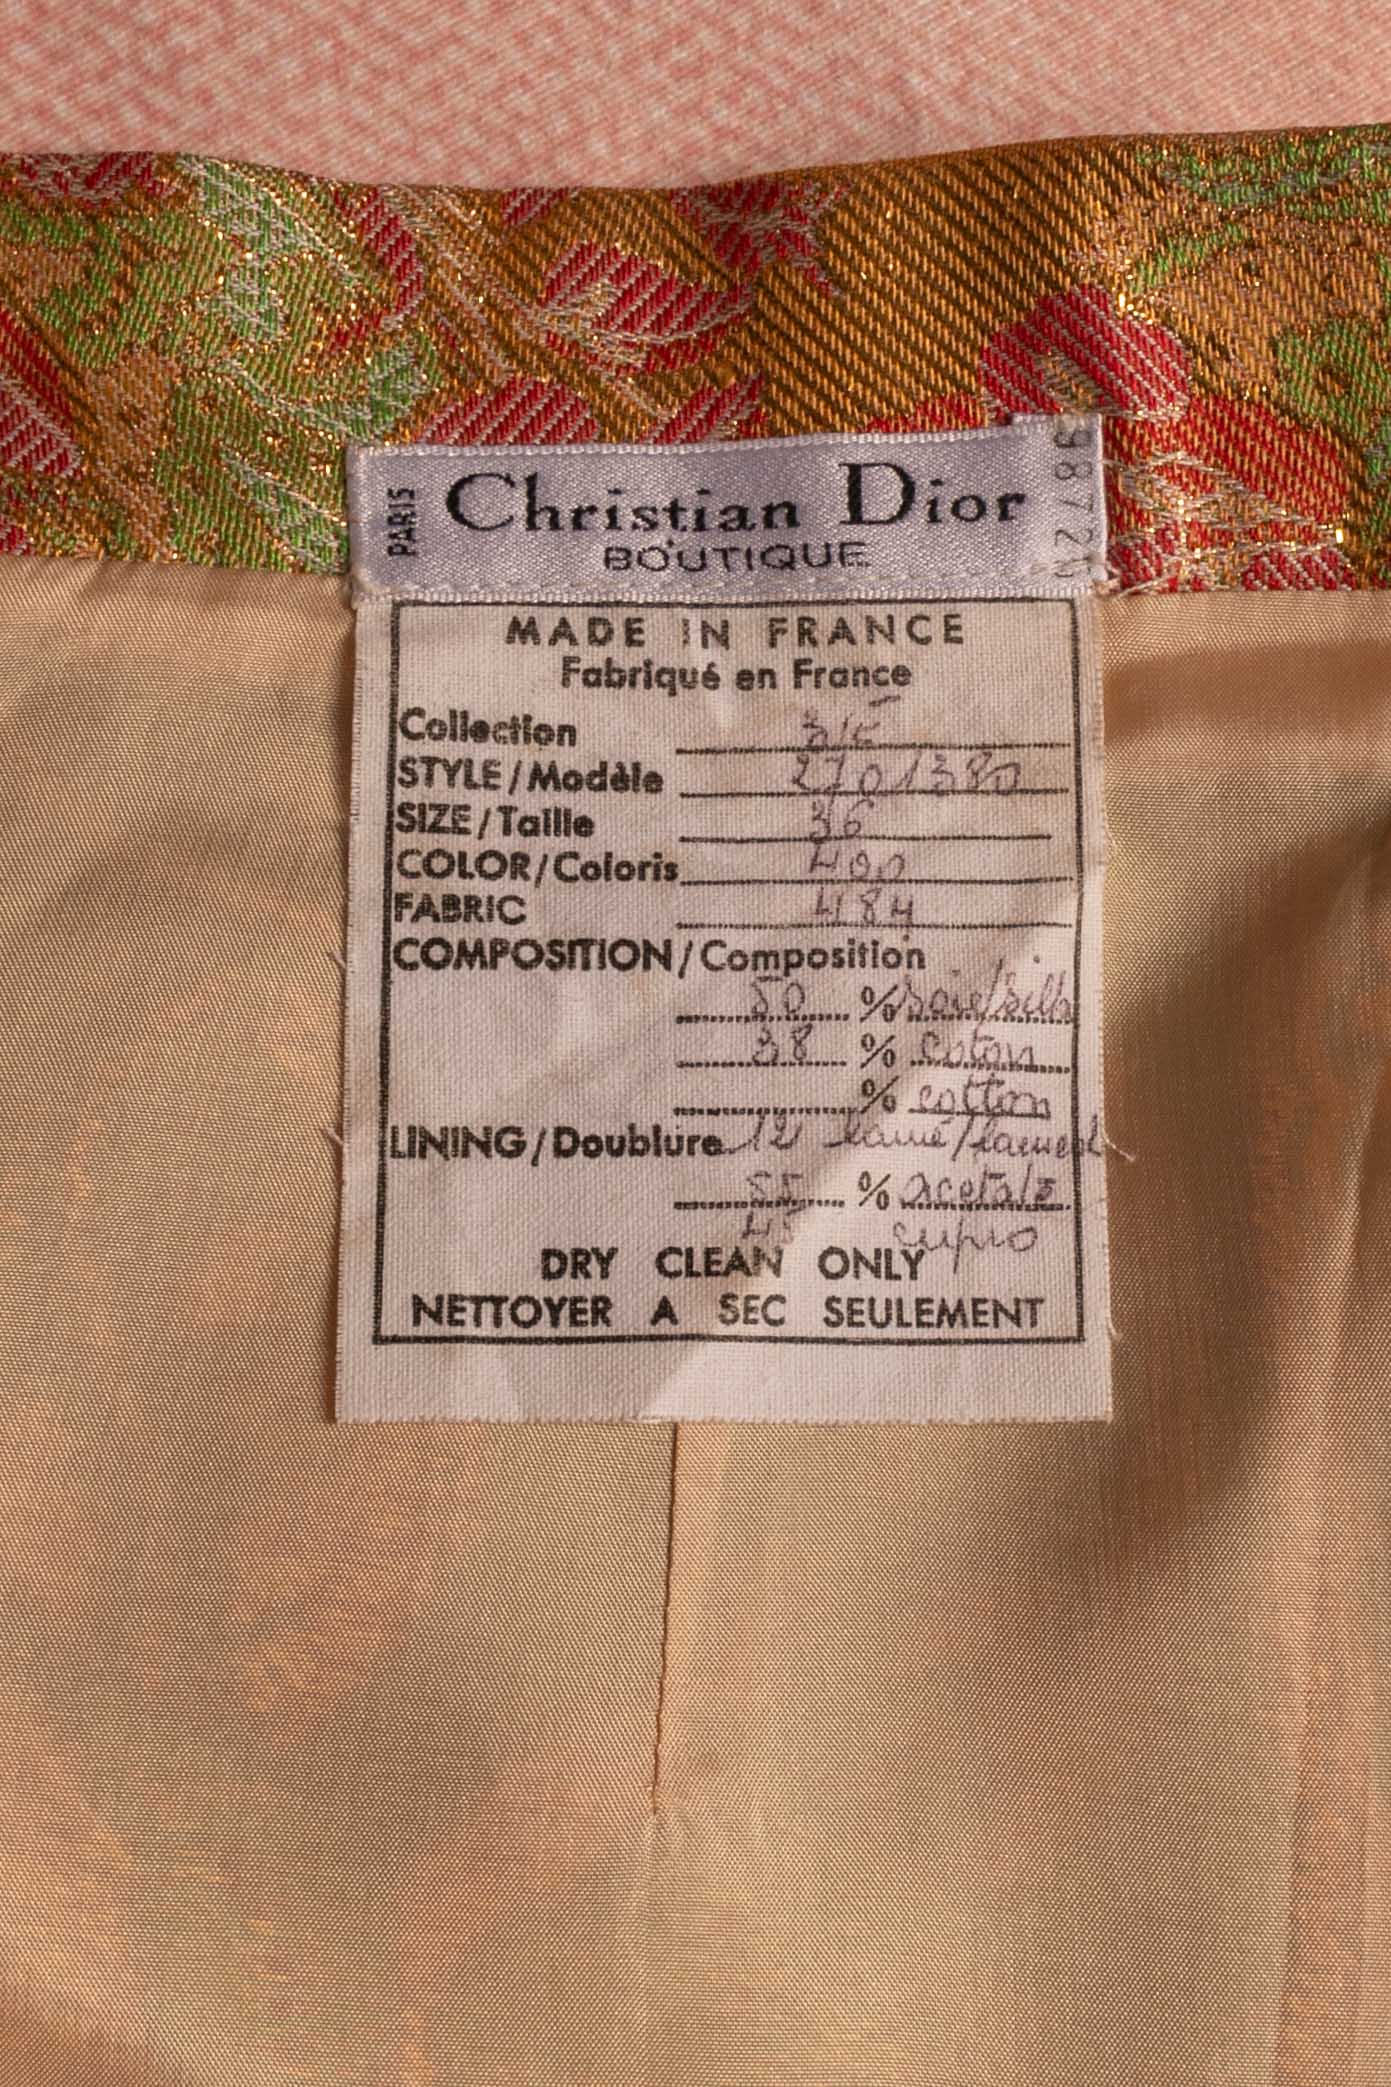 PARIS Christian Dior
BOUTIQUE
MADE IN FRANCE
Fabriqué en France
Collection
STYLE/Modèle 2701380
SIZE/Taille 36
COLOR/Coloris 400
FABRIC 484
COMPOSITION/Composition
50 % soie/silk
38 % coton
% cotton
LINING/Doublure 12 lamé/
55 % acetate
45 cupro
DRY CLEAN ONLY
NETTOYER A SEC SEULEMENT